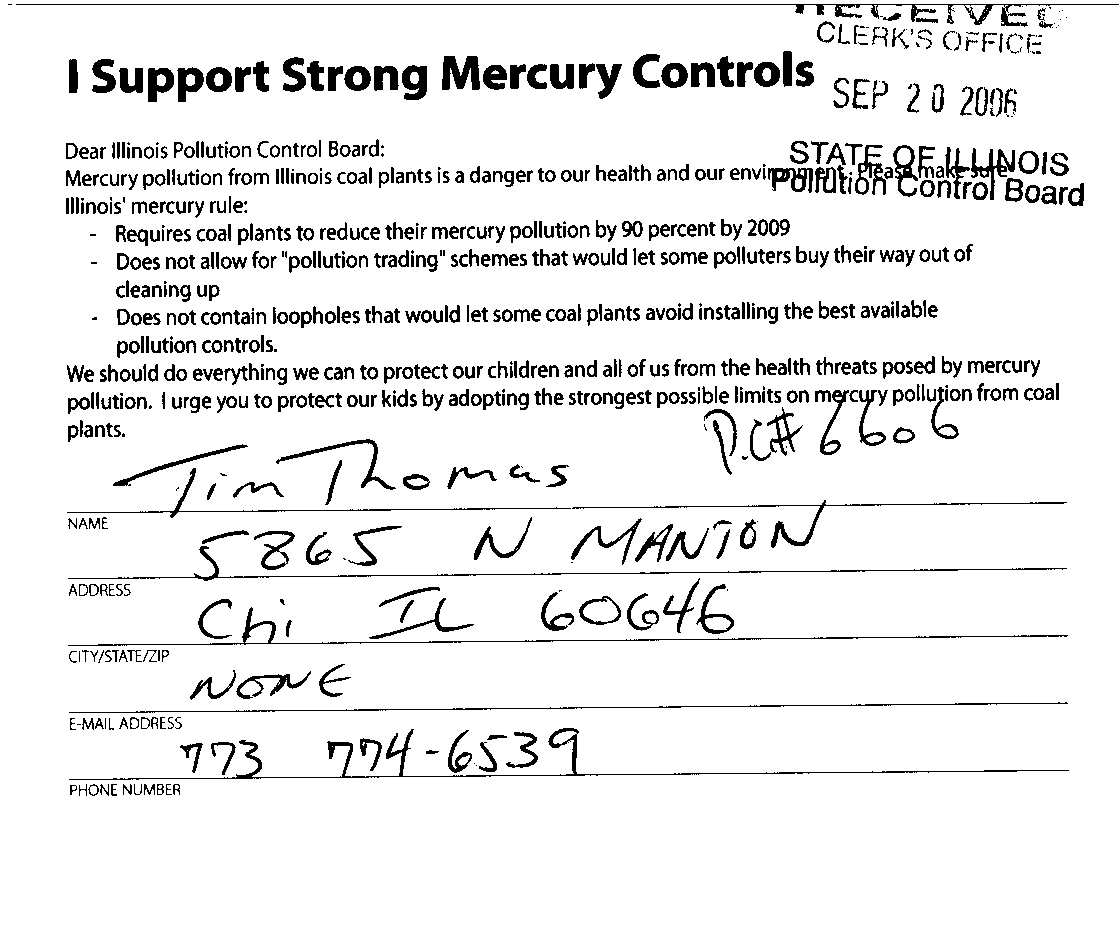 RECEIVED
CLERK'S OFFICE
I Support Strong Mercury Controls
SEP 20 2006
Dear Illinois Pollution Control Board:
STATE OF ILLINOIS
Mercury pollution from Illinois coal plants is a danger to our health and our environment. Please make sure
Pollution Control Board
Illinois' mercury rule:
- Requires coal plants to reduce their mercury pollution by 90 percent by 2009
- Does not allow for "pollution trading" schemes that would let some polluters buy their way out of
cleaning up
- Does not contain loopholes that would let some coal plants avoid installing the best available
pollution controls.
We should do everything we can to protect our children and all of us from the health threats posed by mercury
pollution. I urge you to protect our kids by adopting the strongest possible limits on mercury pollution from coal
plants.
P.C# 6606
Tim Thomas
NAME
5865 N MANTON
ADDRESS
Chi IL 60646
CITY/STATE/ZIP
NONE
E-MAIL ADDRESS
773 774-6539
PHONE NUMBER